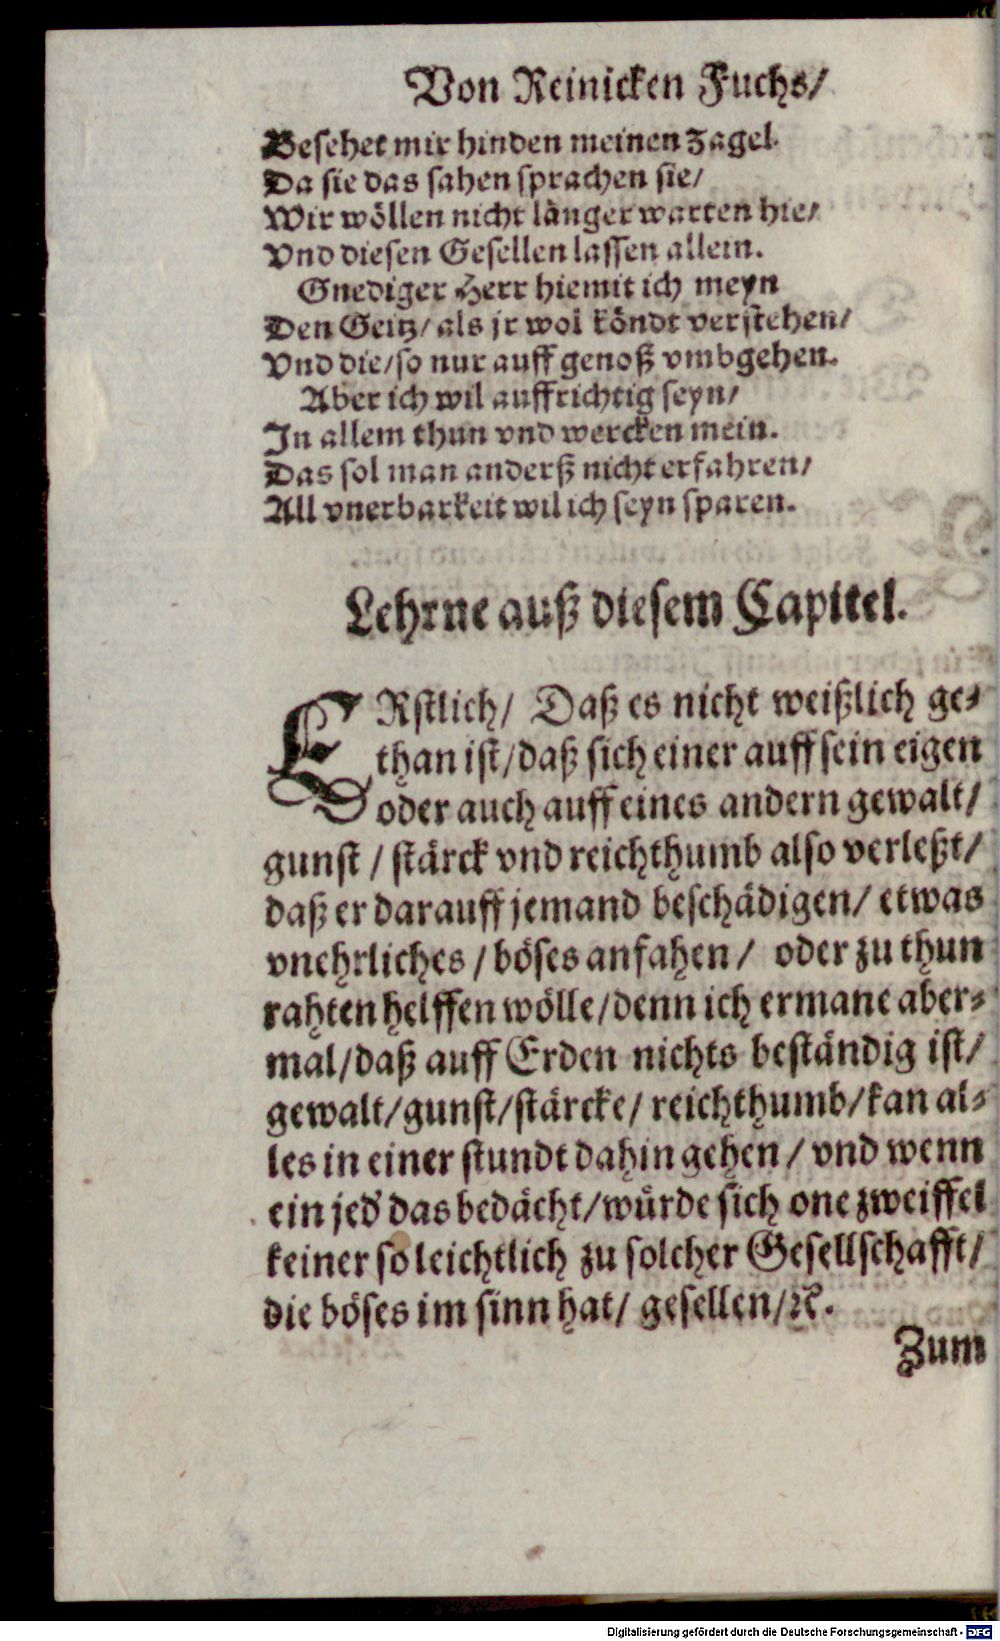 Von Reinicken Fuchs/
Besehet mir hinden meinen Zagel.
Da sie das sahen sprachen sie/
Wir wöllen nicht länger warten hie/
Vnd diesen Gesellen lassen allein.
Gnediger Herr hiemit ich meyn
Den Geitz/ als jr wol köndt verstehen/
Vnd die/ so nur auff genoß vmbgehen.
Aber ich wil auffrichtig seyn/
In allem thun vnd wercken mein.
Das sol man anderß nicht erfahren/
All vnerbarkeit wil ich seyn sparen.
Lehrne auß diesem Capitel.
ERstlich/ Daß es nicht weißlich ge⸗
than ist/ daß sich einer auff sein eigen
oder auch auff eines andern gewalt/
gunst / stärck vnd reichthumb also verleßt/
daß er darauff jemand beschädigen/ etwas
vnehrliches / böses anfahen / oder zu thun
rahten helffen wölle/ denn ich ermane aber⸗
mal/ daß auff Erden nichts beständig ist/
gewalt/ gunst/ stärcke/ reichthumb/ kan al⸗
les in einer stundt dahin gehen / vnd wenn
ein jed' das bedächt/ würde sich one zweiffel
keiner so leichtlich zu solcher Gesellschafft/
die böses im sinn hat/ gesellen/ ꝛc.
Zum
Digitalisierung gefördert durch die Deutsche Forschungsgemeinschaft - DFG